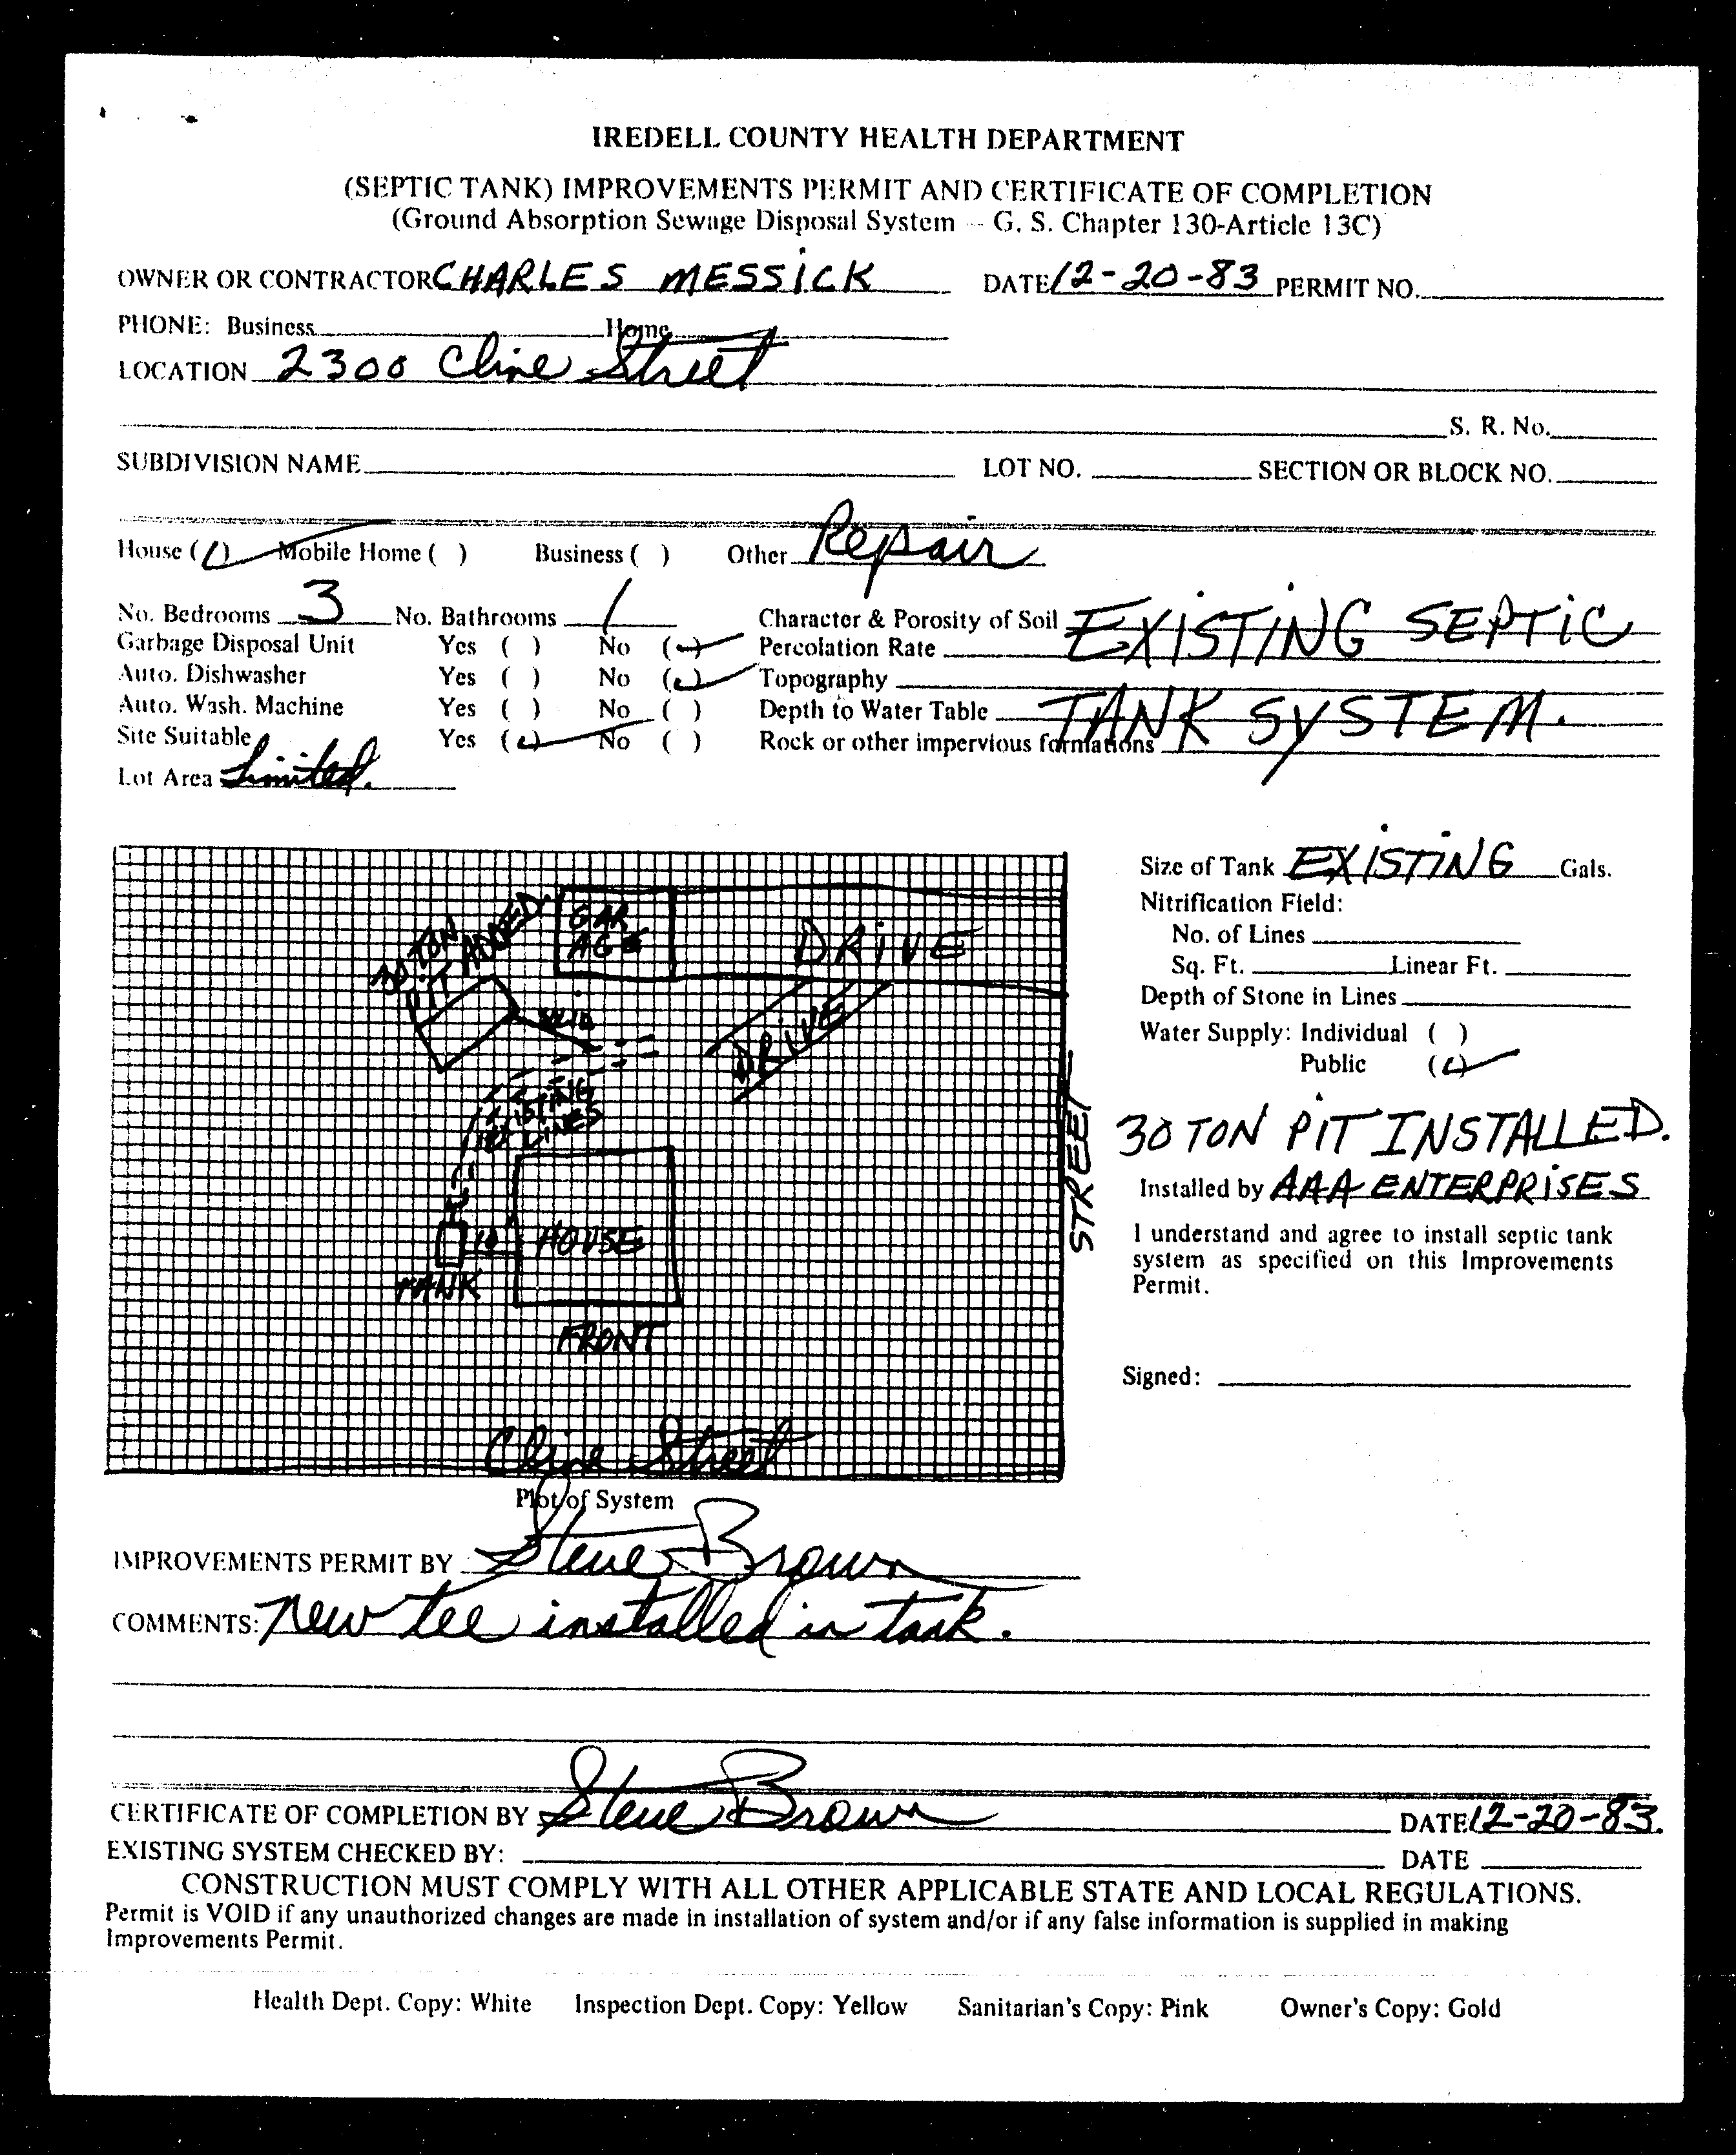 IREDELL COUNTY HEALTH DEPARTMENT
(SEPTIC TANK) IMPROVEMENTS PERMIT AND CERTIFICATE OF COMPLETION
(Ground Absorption Sewage Disposal System - G. S. Chapter 130-Article 13C)
OWNER OR CONTRACTOR CHARLES MESSICK DATE 12-20-83 PERMIT NO.
PHONE: Business Home
LOCATION 2300 Cline Street
S. R. No.
SUBDIVISION NAME LOT NO. SECTION OR BLOCK NO.
House (✓) Mobile Home ( ) Business ( ) Other Repair
No. Bedrooms 3 No. Bathrooms 1 Character & Porosity of Soil EXISTING SEPTIC
Garbage Disposal Unit Yes ( ) No (✓) Percolation Rate
Auto. Dishwasher Yes ( ) No (✓) Topography
Auto. Wash. Machine Yes ( ) No ( ) Depth to Water Table TANK SYSTEM.
Site Suitable Yes (✓) No ( ) Rock or other impervious formations
Lot Area Limited.
30 TON
PIT ADDED.
GAR
AGE
DRIVE
SOLID
DRIVE
EXISTING
LINES
STREET
10'
HOUSE
TANK
FRONT
Cline Street
Plot of System
Size of Tank EXISTING Gals.
Nitrification Field:
No. of Lines
Sq. Ft. Linear Ft.
Depth of Stone in Lines
Water Supply: Individual ( )
Public (✓)
30 TON PIT INSTALLED.
Installed by AAA ENTERPRISES
I understand and agree to install septic tank
system as specified on this Improvements
Permit.
Signed:
IMPROVEMENTS PERMIT BY Steve Brown
COMMENTS: New tee installed in tank.
CERTIFICATE OF COMPLETION BY Steve Brown DATE 12-20-83.
EXISTING SYSTEM CHECKED BY: DATE
CONSTRUCTION MUST COMPLY WITH ALL OTHER APPLICABLE STATE AND LOCAL REGULATIONS.
Permit is VOID if any unauthorized changes are made in installation of system and/or if any false information is supplied in making
Improvements Permit.
Health Dept. Copy: White Inspection Dept. Copy: Yellow Sanitarian's Copy: Pink Owner's Copy: Gold